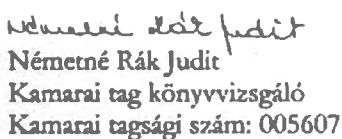 Németné Rák Judit
Németné Rák Judit
Kamarai tag könyvvizsgáló
Kamarai tagsági szám: 005607